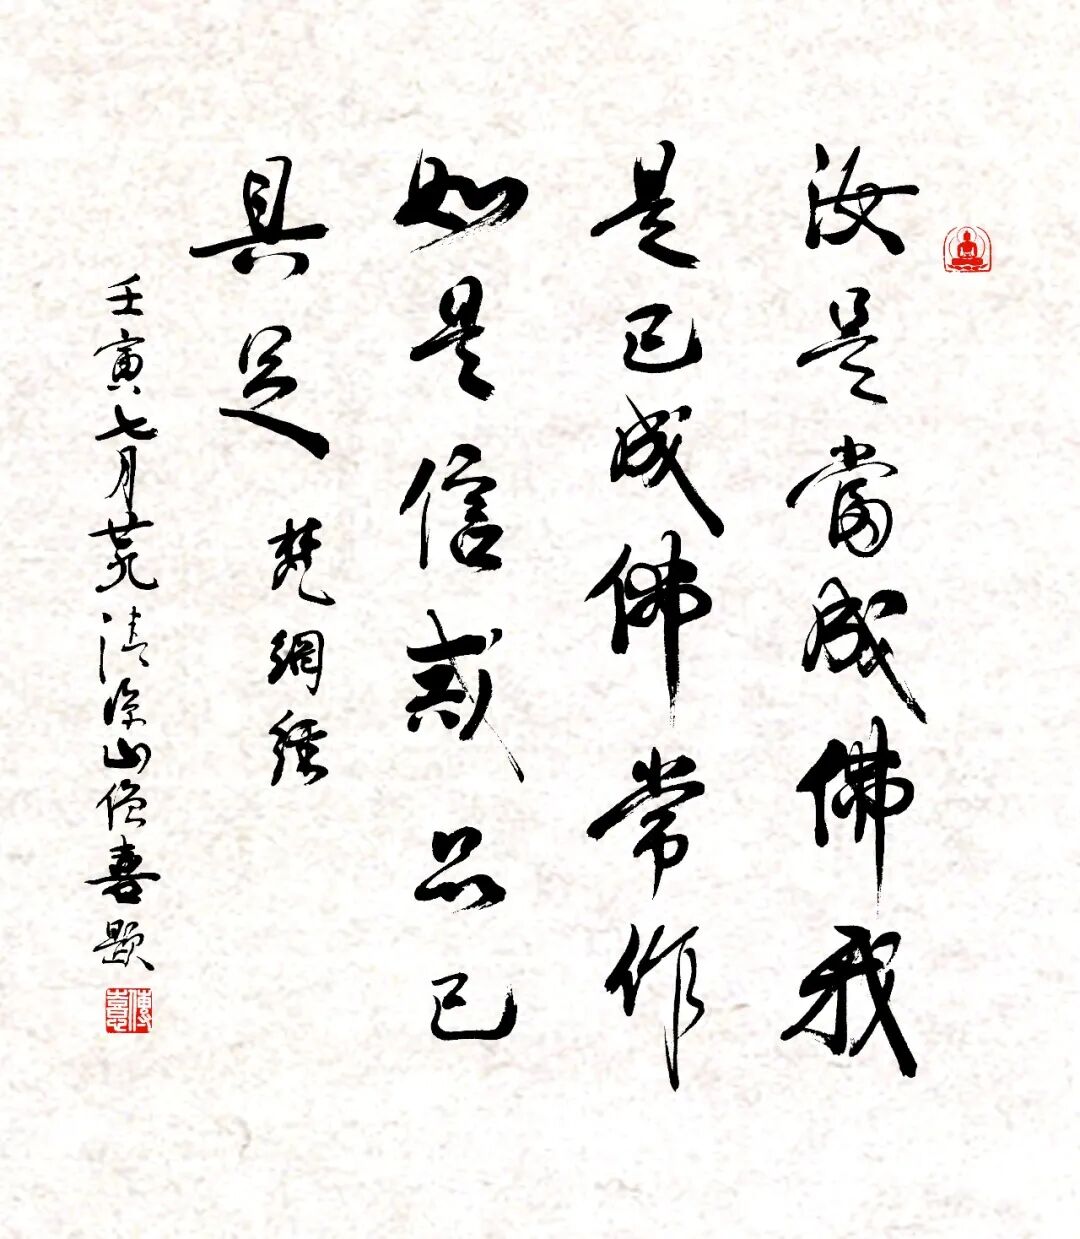 汝是當成佛我
是已成佛常作
如是信戒品已
具足
梵網經
壬寅七月廿九清涼山傳喜題
傳喜